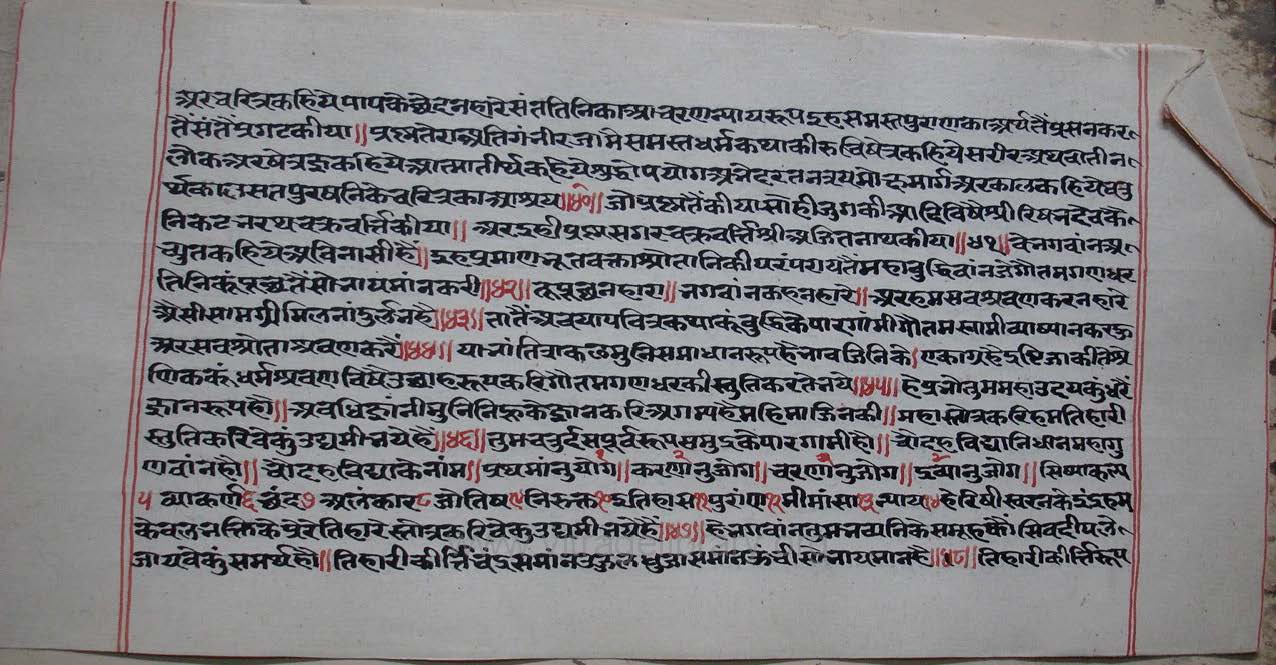 अर चरित्र कहिये पाप के छेदनहारे संत तिनिका आचरण न्यायरूप इह समस्त पुराण का अर्थ तैं प्रसन कर
तैं संतैं प्रगट कीया॥ प्रश्न तेरा अति गंभीर जामै समस्त धर्मकथा की रुचि षेत्र कहिये सरीर अथवा तीन
लोक अर षेत्रज्ञ कहिये आत्मा तीर्थ कहिये शुद्धोपयोग अभेद रतनत्रय मोक्षमार्ग अर काल कहिये चतु
र्थकाल सतपुरषनि के चरित्र का आश्रय॥४०॥ जो प्रश्न तैं कीया सो ही जुग की आदि विषै श्री रिषभदेव कै
निकट भरथ चक्रवर्त्ति कीया॥ अर इही प्रश्न सगर चक्रवर्त्ति श्री अजितनाथ कीया॥४१॥ वे भगवांन अ
च्युत कहिये अविनासी हैं॥ इह प्रमाणभूत वक्ता श्रोतानि की परंपराय तैं महाबुद्धिवांन जे गौतम गणधर
तिनिकूं पूछतैं सोभायमांन करी॥४२॥ तू पूछनहारा॥ भगवांन कहनहारे॥ अर हम सब श्रवण करनहारे
औसी सामग्री मिलनां दुर्लभ है॥४३॥ तातैं अब या पवित्र कथाकूं बुद्धि के पारगांमी गौतमस्वामी व्याष्यान करहु
अर सब श्रोता श्रवण करौ॥४४॥ या भांति सकल मुनि समाधानरूप है भाव जिनिके एकाग्र है द्रष्टि जाकी तिनि श्रे
णिककूं धर्मश्रवण विषै उछाहरूप करि गौतम गणधर की स्तुति करते भये॥४५॥ हे प्रभो तुम महाउदयकूं धरैं
ज्ञानरूप हौ॥ अवधिज्ञांनी मुनिनिहू के ज्ञान करि अगम्य है महिमा जिनकी॥ महास्तोत्र करि हम तिहारी
स्तुति करिवेकुं उद्यमी भये हैं॥४६॥ तुम चतुर्दस पूर्वरूप समुद्र के पारगामी हौ॥ चौदह विद्यानिधान महागु
णवांन हौ॥ चौदह विद्या के नांम॥ प्रथमांनुयोग १॥ करणांनुजोग २॥ चरणांनुजोग ३॥ द्रव्यानुजोग ४॥ सिष्या कल्प
५ व्याकर्ण ६ छंद ७ अलंकार ८ जोतिष ९ निरुक्त १० इतिहास ११ पुरांण १२ मीमांसा १३ न्याय १४ हे रिषीस्वरन के इंद्र हम
केवल भक्ति के प्रेरे तिहारे स्तोत्र करिवेकु उद्यमी भये हैं॥४७॥ हे भगवांन तुम भव्यनि के समूह कौं सिव दीप ले
जायवेकुं समर्थ हौ॥ तिहारी कीर्त्ति चंद्र समान उज्जल धुजा समान ऊंची सोभायमान है॥४८॥ तिहारी कीर्त्तिरूप